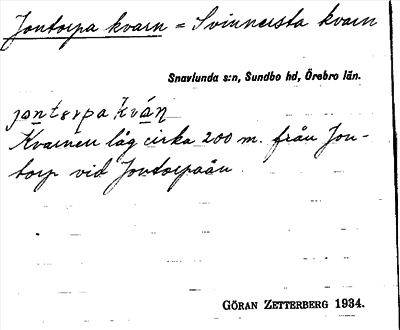 Jontorpa kvarn = Svinnersta kvarn
Snavlunda s:n, Sundbo hd, Örebro län.
jo̲nterpa kvá̲n
Kvarnen låg cirka 200 m. från Jon-
torp vid Jontorpaån.
GÖRAN ZETTERBERG 1934.